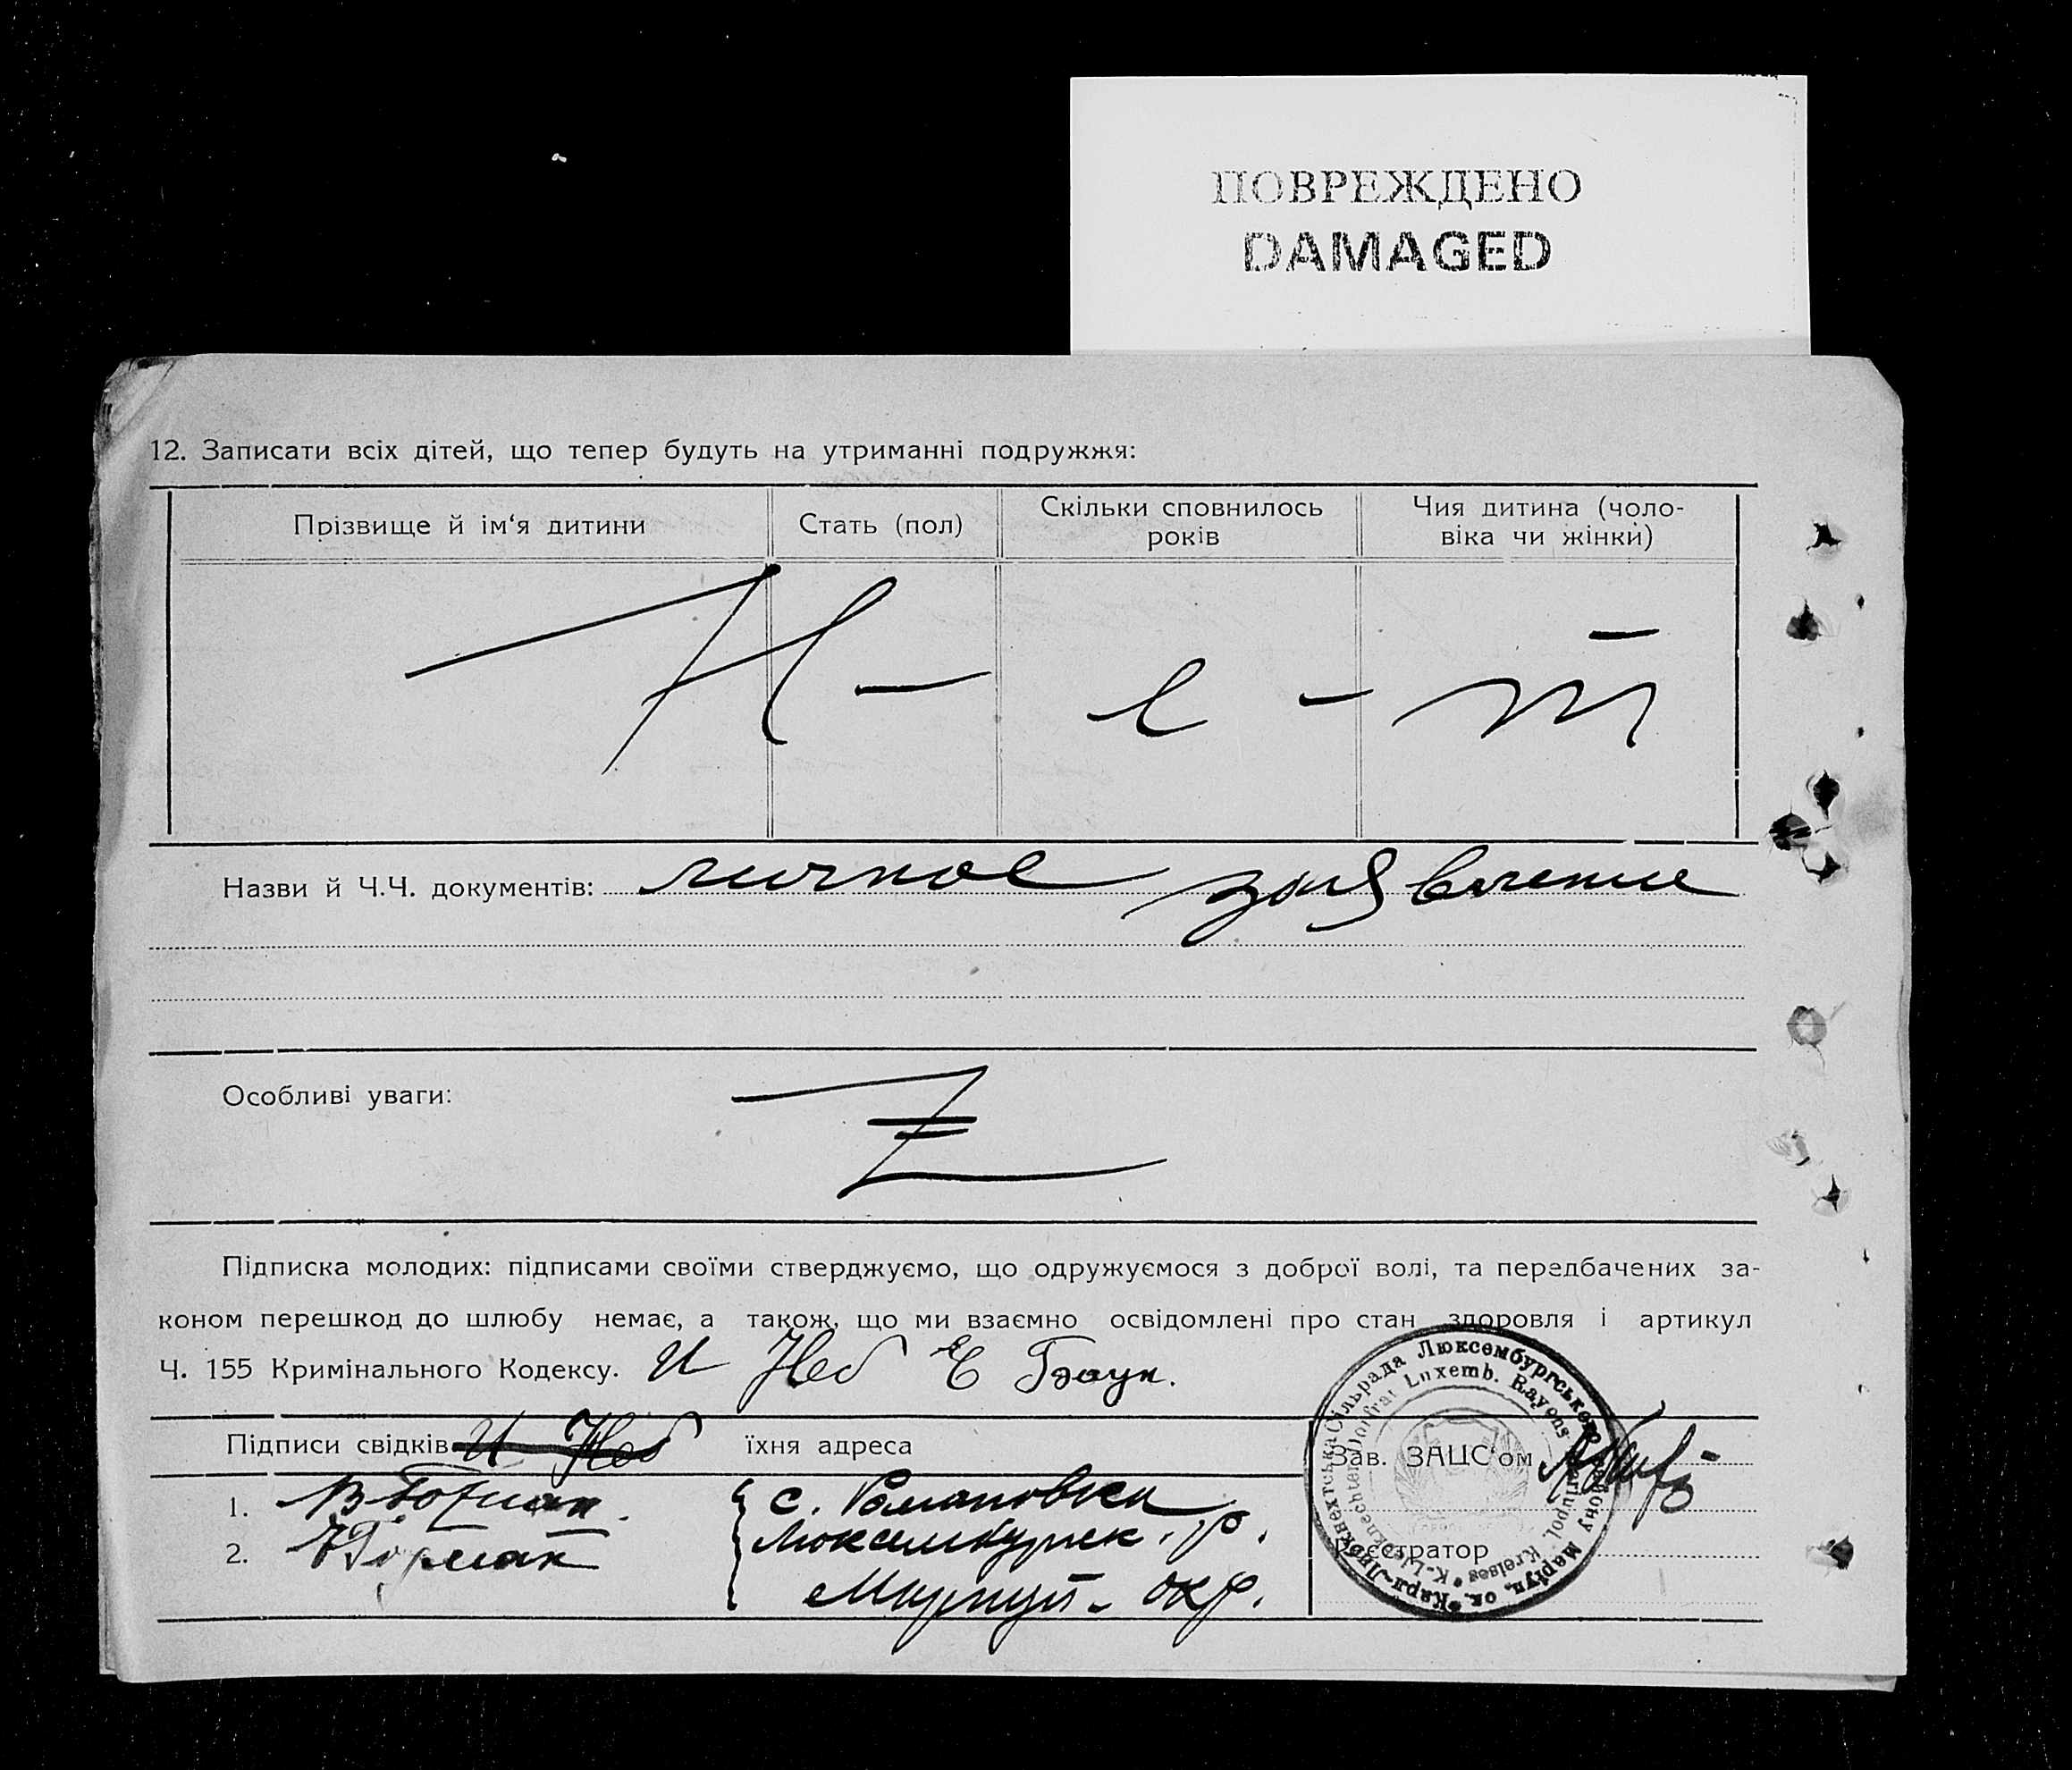 ПОВРЕЖДЕНО
DAMAGED
12. Записати всіх дітей, що тепер будуть на утриманні подружжя:
Прізвище й ім‘я дитини
Стать (пол)
Скільки сповнилось
років
Чия дитина (чоло-
віка чи жінки)
Н - е - т
Назви й Ч.Ч. документів: личное заявление
Особливі уваги:
Підписка молодих: підписами своїми стверджуємо, що одружуємося з доброї волі, та передбачених за-
коном перешкод до шлюбу немає, а також, що ми взаємно освідомлені про стан здоровля і артикул
Ч. 155 Кримінального Кодексу. И Неб Е Браун.
Підписи свідків И Неб
їхня адреса
1.
2.
с. Романовка
Люксембургск. р.
Мариуп- окр.
Зав. ЗАЦС‘ом
Реєстратор
Карл-Лібкнехтська Сільрада Люксембургського Району Маріуп. ок.
K-Liebknechter Dorfrat Luxemb. Rayons Mariupol. Kreises